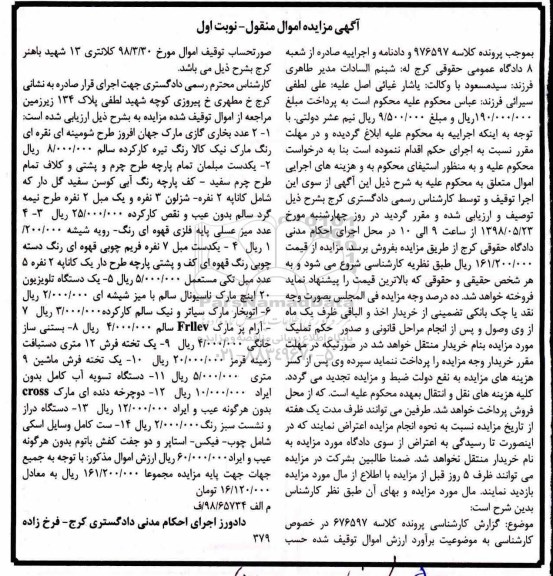 آگهی مزایده اموال منقول- نوبت اول
بموجب پرونده کلاسه ۹۷۶۵۹۷ و دادنامه و اجراییه صادره از شعبه
۸ دادگاه عمومی حقوقی کرج له: شبنم السادات مدیر طاهری
فرزند: سیدمسعود با وکالت: یاشار غیاثی اصل علیه: علی لطفی
سیرائی فرزند: عباس محکوم علیه محکوم است به پرداخت مبلغ
۱۹۰/۰۰۰/۰۰۰ریال و مبلغ ۹/۵۰۰/۰۰۰ ریال نیم عشر دولتی. با
توجه به اینکه اجراییه به محکوم علیه ابلاغ گردیده و در مهلت
مقرر نسبت به اجرای حکم اقدام ننموده است بنا به درخواست
محکوم علیه و به منظور استیفای محکوم به و هزینه های اجرایی
اموال متعلق به محکوم علیه به شرح ذیل این آگهی از سوی این
اجرا توقیف و توسط کارشناس رسمی دادگستری کرج بشرح ذیل
توصیف و ارزیابی شده و مقرر گردید در روز چهارشنبه مورخ
۱۳۹۸/۰۵/۲۳ از ساعت ۹ الی ۱۰ در محل اجرای احکام مدنی
دادگاه حقوقی کرج از طریق مزایده بفروش برسد مزایده از قیمت
۱۶۱/۲۰۰/۰۰۰ ریال طبق نظریه کارشناسی شروع می شود و به
هر شخص حقیقی و حقوقی که بالاترین قیمت را پیشنهاد نماید
فروخته خواهد شد. ده درصد وجه مزایده فی المجلس بصورت وجه
نقد یا چک بانکی تضمینی از خریدار اخذ و الباقی ظرف یک ماه
از وی وصول و پس از انجام مراحل قانونی و صدور حکم تملیک
مورد مزایده بنام خریدار منتقل خواهد شد در صورتیکه در مهلت
مقرر خریدار وجه مزایده را پرداخت ننماید سپرده وی پس از کسر
هزینه های مزایده به نفع دولت ضبط و مزایده تجدید می گردد.
کلیه هزینه های نقل و انتقال بعهده محکوم علیه است. که از محل
فروش پرداخت خواهد شد. طرفین می توانند ظرف مدت یک هفته
از تاریخ مزایده نسبت به نحوه انجام مزایده اعتراض نمایند که در
اینصورت تا رسیدگی به اعتراض از سوی دادگاه مورد مزایده به
نام خریدار منتقل نخواهد شد. ضمنا طالبین بشرکت در مزایده
می توانند ظرف ۵ روز قبل از مزایده با اطلاع از مال مورد مزایده
بازدید نمایند. مال مورد مزایده و بهای آن طبق نظر کارشناس
بدین شرح است:
موضوع: گزارش کارشناسی پرونده کلاسه ۶۷۶۵۹۷ در خصوص
کارشناسی به موضوعیت برآورد ارزش اموال توقیف شده حسب
صورتحساب توقیف اموال مورخ ۹۸/۳/۳۰ کلانتری ۱۳ شهید باهنر
کرج بشرح ذیل می باشد.
کارشناس محترم رسمی دادگستری جهت اجرای قرار صادره به نشانی
کرج خ مطهری خ پیروزی کوچه شهید لطفی پلاک ۱۳۴ زیرزمین
مراجعه از اموال توقیف شده مزایده به بشرح ذیل ارزیابی شده است:
۱- ۲ عدد بخاری گازی مارک جهان افروز طرح شومینه ای نقره ای
رنگ مارک نیک کالا رنگ تیره کارکرده سالم ۸/۰۰۰/۰۰۰ ریال
۲- یکدست مبلمان تمام پارچه طرح چرم و پشتی و کلاف تمام
طرح چرم سفید – کف پارچه رنگ آبی کوسن سفید گل دار که
شامل کاناپه ۲ نفره- شزلون ۳ نفره و یک مبل ۲ نفره طرح نیمه
گرد سالم بدون عیب و نقص کارکرده ۲۵/۰۰۰/۰۰۰ ریال ۳- ۴
عدد میز عسلی پایه فلزی قهوه ای رنگ- رویه شیشه ۲۰۰/۰۰۰/
۱ ریال ۴ - یکدست مبل ۷ نفره فریم چوبی قهوه ای رنگ دسته
چوبی رنگ قهوه ای کف و پشتی پارچه طرح دار یک کاناپه ۲ نفره ۵
عدد مبل تکی مستعمل ۵/۰۰۰/۰۰۰ ریال ۵- یک دستگاه تلویزیون
۲۰ اینچ مارک ناسیونال سالم با میز شیشه ای ۲/۰۰۰/۰۰۰ ریال
۶- اتوبخار مارک سیاتر و نیک سالم کارکرده۳/۰۰۰/۰۰۰ ریال ۷
- آرام پز مارک Frllev سالم ۴/۰۰۰/۰۰۰ ریال ۸- بستنی ساز
خانگی ۴/۰۰۰/۰۰۰ ریال ۹- یک تخته فرش ۱۲ متری دستبافت
زمینه قرمز ۲۰/۰۰۰/۰۰۰ ریال ۱۰- یک تخته فرش ماشین ۹
متری ۵/۰۰۰/۰۰۰ ریال ۱۱- دستگاه تسویه آب کامل بدون
ایراد ۱۰/۰۰۰/۰۰۰ ریال ۱۲- دوچرخه دنده ای مارک cross
بدون هرگونه عیب و ایراد ۱۲/۰۰۰/۰۰۰ ریال ۱۳- دستگاه دراز
و نشست سبز رنگ۲/۰۰۰/۰۰۰ ریال ۱۴- ست کامل وسایل اسکی
شامل چوب- فیکس- استاپر و دو جفت کفش باتوم بدون هرگونه
عیب و ایراد۶۰/۰۰۰/۰۰۰ ریال ارزش اموال مذکور: با توجه به جمیع
جهات جهت پایه مزایده مجموعا ۱۶۱/۲۰۰/۰۰۰ ریال به معادل
۱۶/۱۲۰/۰۰۰ تومان
م الف ۹۸/۶۵۷۳۴/ف
دادورز اجرای احکام مدنی دادگستری کرج- فرخ زاده
۳۷۹